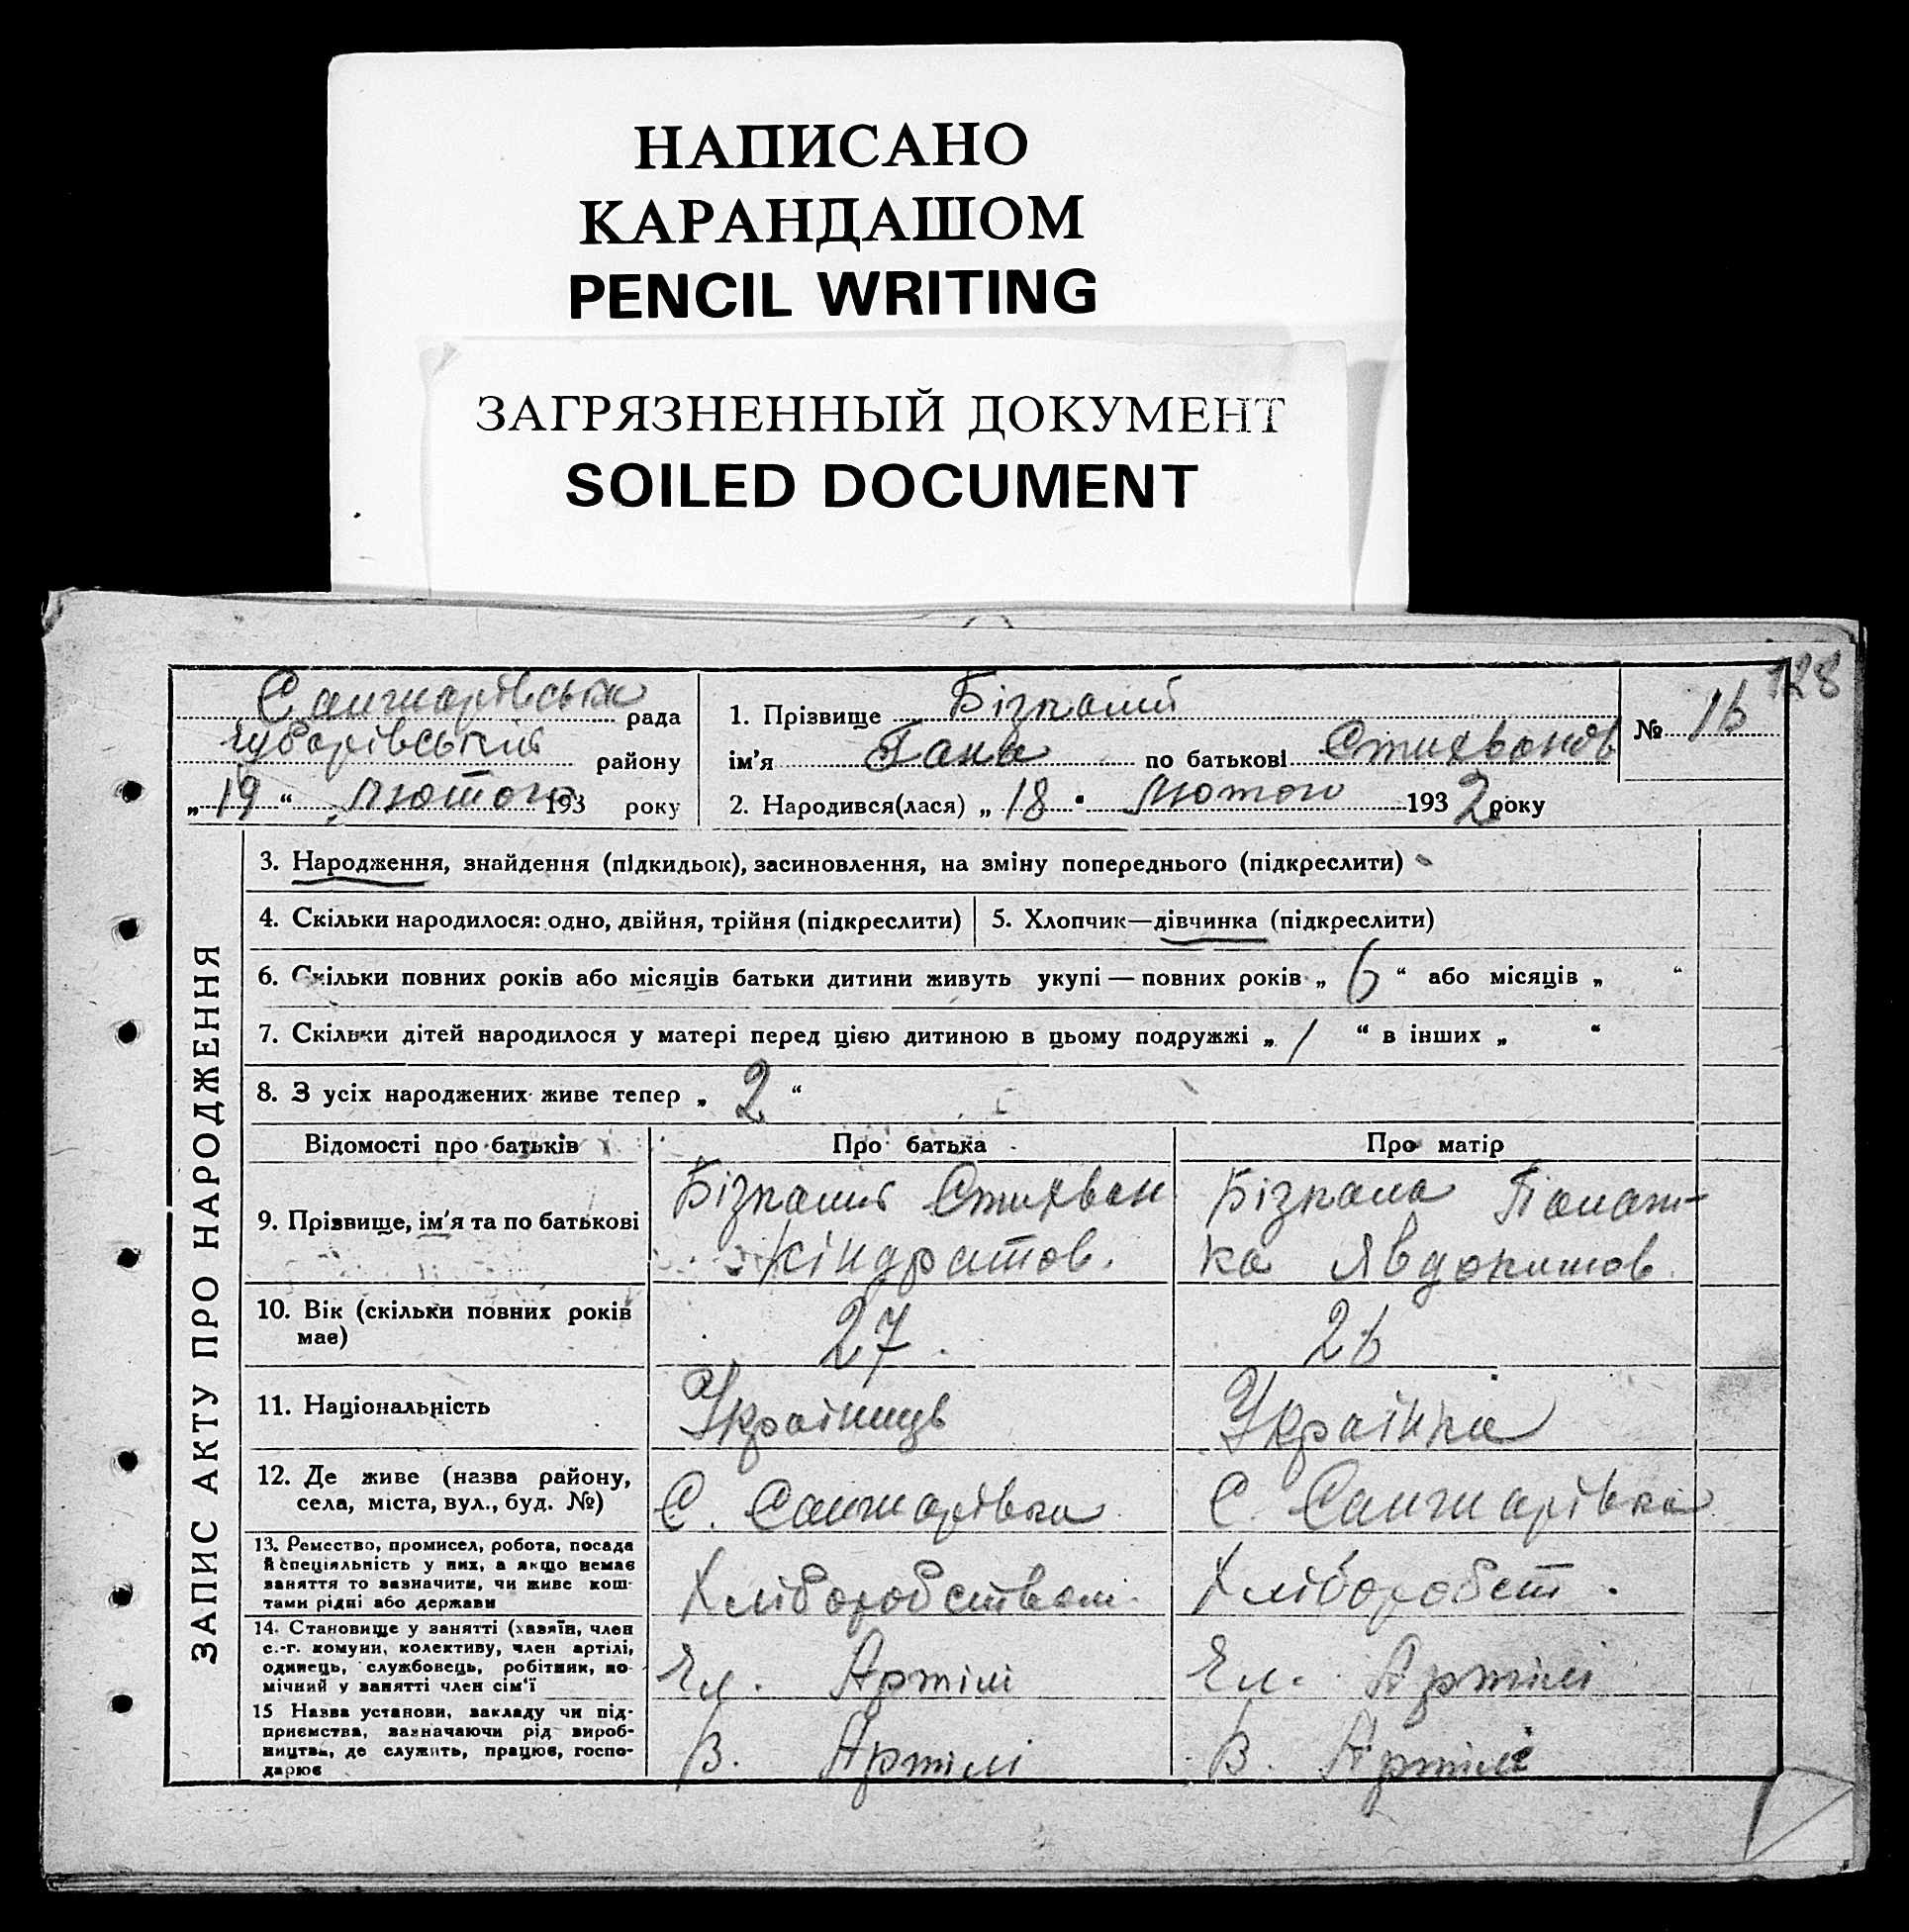 НАПИСАНО
КАРАНДАШОМ
PENCIL WRITING
ЗАГРЯЗНЕННЫЙ ДОКУМЕНТ
SOILED DOCUMENT
128
Санжарівська рада
Чубарівський району
„ 19 “ Лютого 193 року
1. Прізвище
№ 16
ім'я Гана по батькові Стихванов
2. Народився(лася) „ 18 “ Лютого 1932 року
ЗАПИС АКТУ ПРО НАРОДЖЕННЯ
3. Народження, знайдення (підкидьок), засиновлення, на зміну попереднього (підкреслити)
4. Скільки народилося: одно, двійня, трійня (підкреслити)
5. Хлопчик—дівчинка (підкреслити)
6. Скільки повних років або місяців батьки дитини живуть укупі — повних років „ 6 “ або місяців „ “
7. Скільки дітей народилося у матері перед цією дитиною в цьому подружжі „ 1 “ в інших „ “
8. З усіх народжених живе тепер „ 2 “
Відомості про батьків
Про батька
Про матір
9. Прізвище, ім'я та по батькові
Стихван
Кіндратов.
Панаж-
ка Явдокимов.
10. Вік (скільки повних років
має)
27.
26
11. Національність
Українець
Українка
12. Де живе (назва району,
села, міста, вул., буд. №)
С. Санжарівка
С. Санжарівка
13. Ремество, промисел, робота, посада
й спеціяльність у них, а якщо немає
заняття то зазначити, чи живе кош-
тами рідні або держави
Хліборобством.
Хліборобст.
14. Становище у занятті (хазяїн, член
с.-г. комуни, колективу, член артілі,
одинець, службовець, робітник, по-
мічний у занятті член сім'ї
Чл. Артілі
Чл. Артілі
15 Назва установи, закладу чи під-
приємства, зазначаючи рід вироб-
ництва, де служить, працює, госпо-
дарює
В. Артілі
В. Артілі